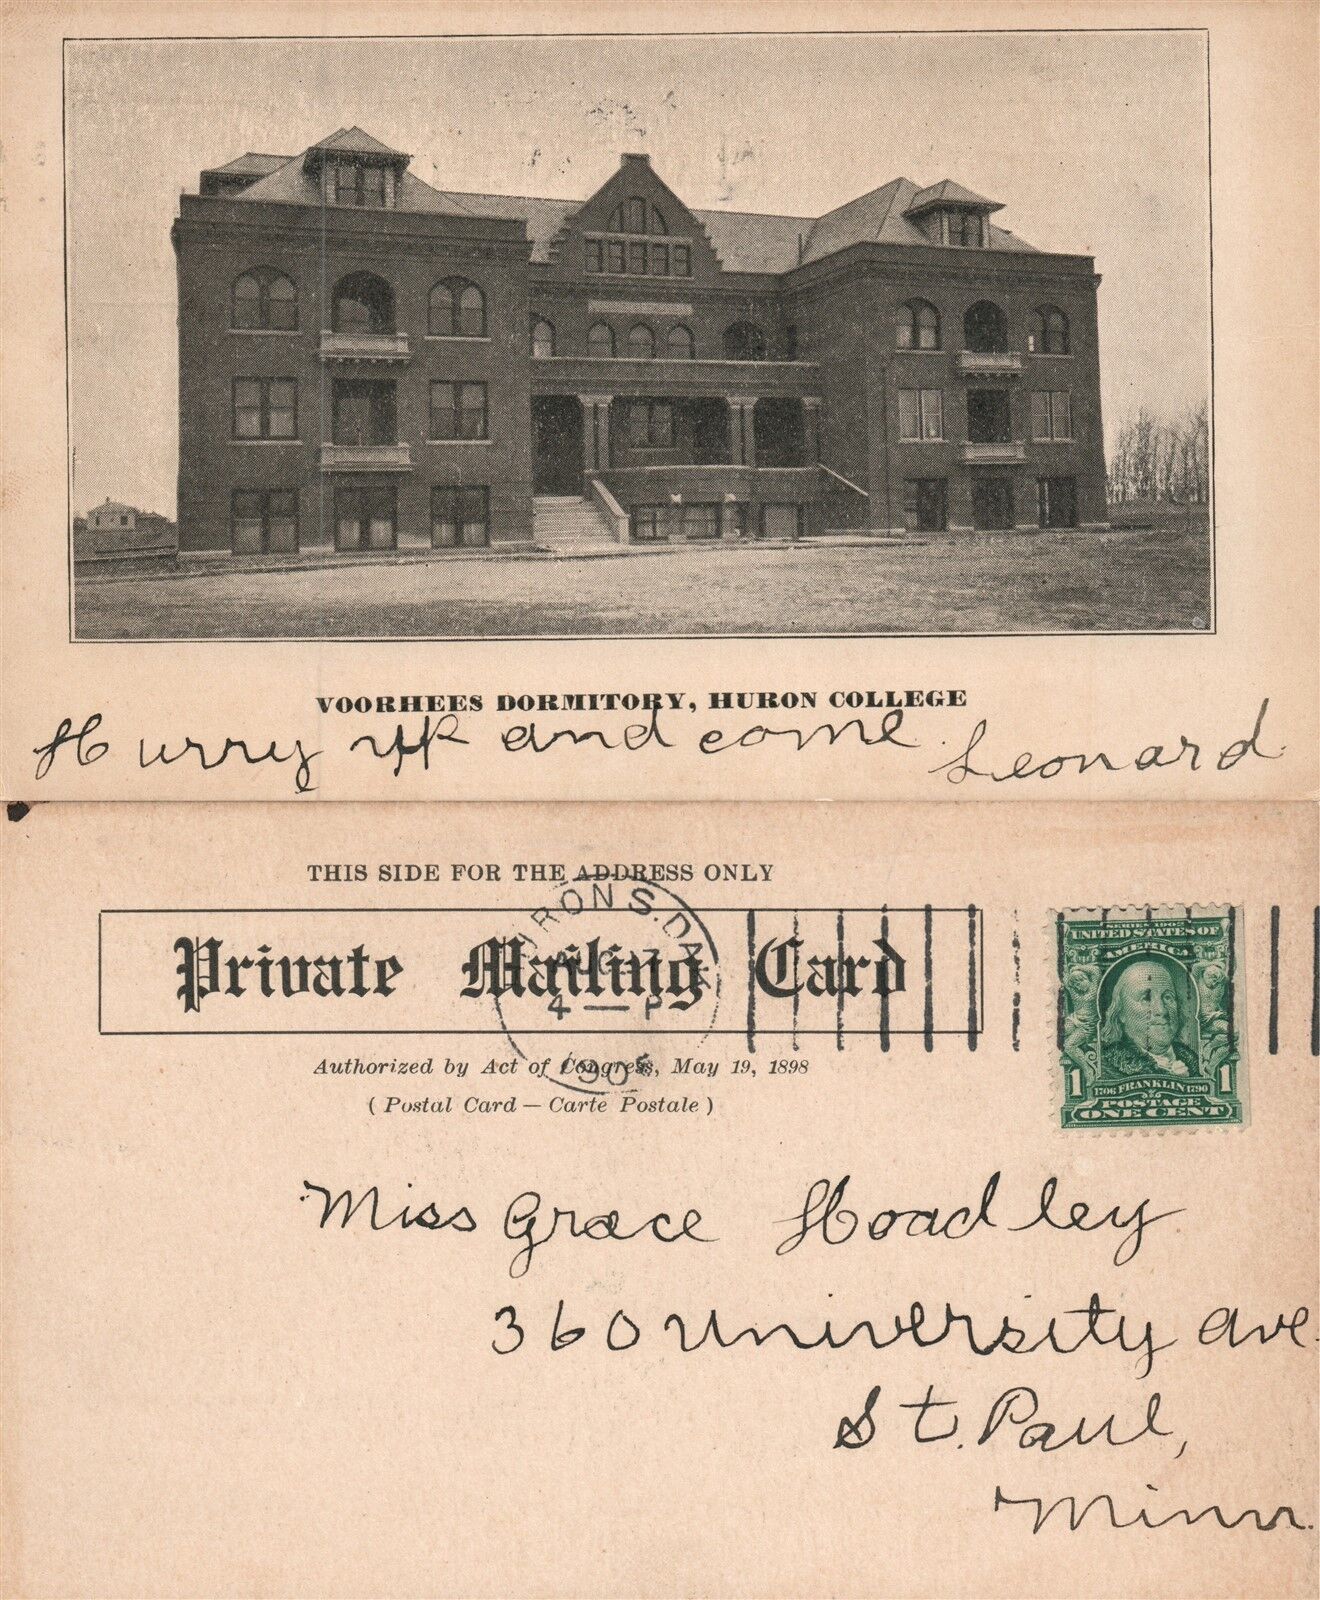 VOORHEES DORMITORY, HURON COLLEGE
Hurry up and come. Leonard
THIS SIDE FOR THE ADDRESS ONLY
Private Mailing Card
HURON S. DAK.
AUG 17
4 — P
190
Authorized by Act of Congress, May 19, 1898
( Postal Card — Carte Postale )
SERIES 1902
UNITED STATES OF
AMERICA
1 1706 FRANKLIN 1790 1
POSTAGE
ONE CENT
Miss Grace Hoadley
360 University Ave.
St. Paul,
Minn.